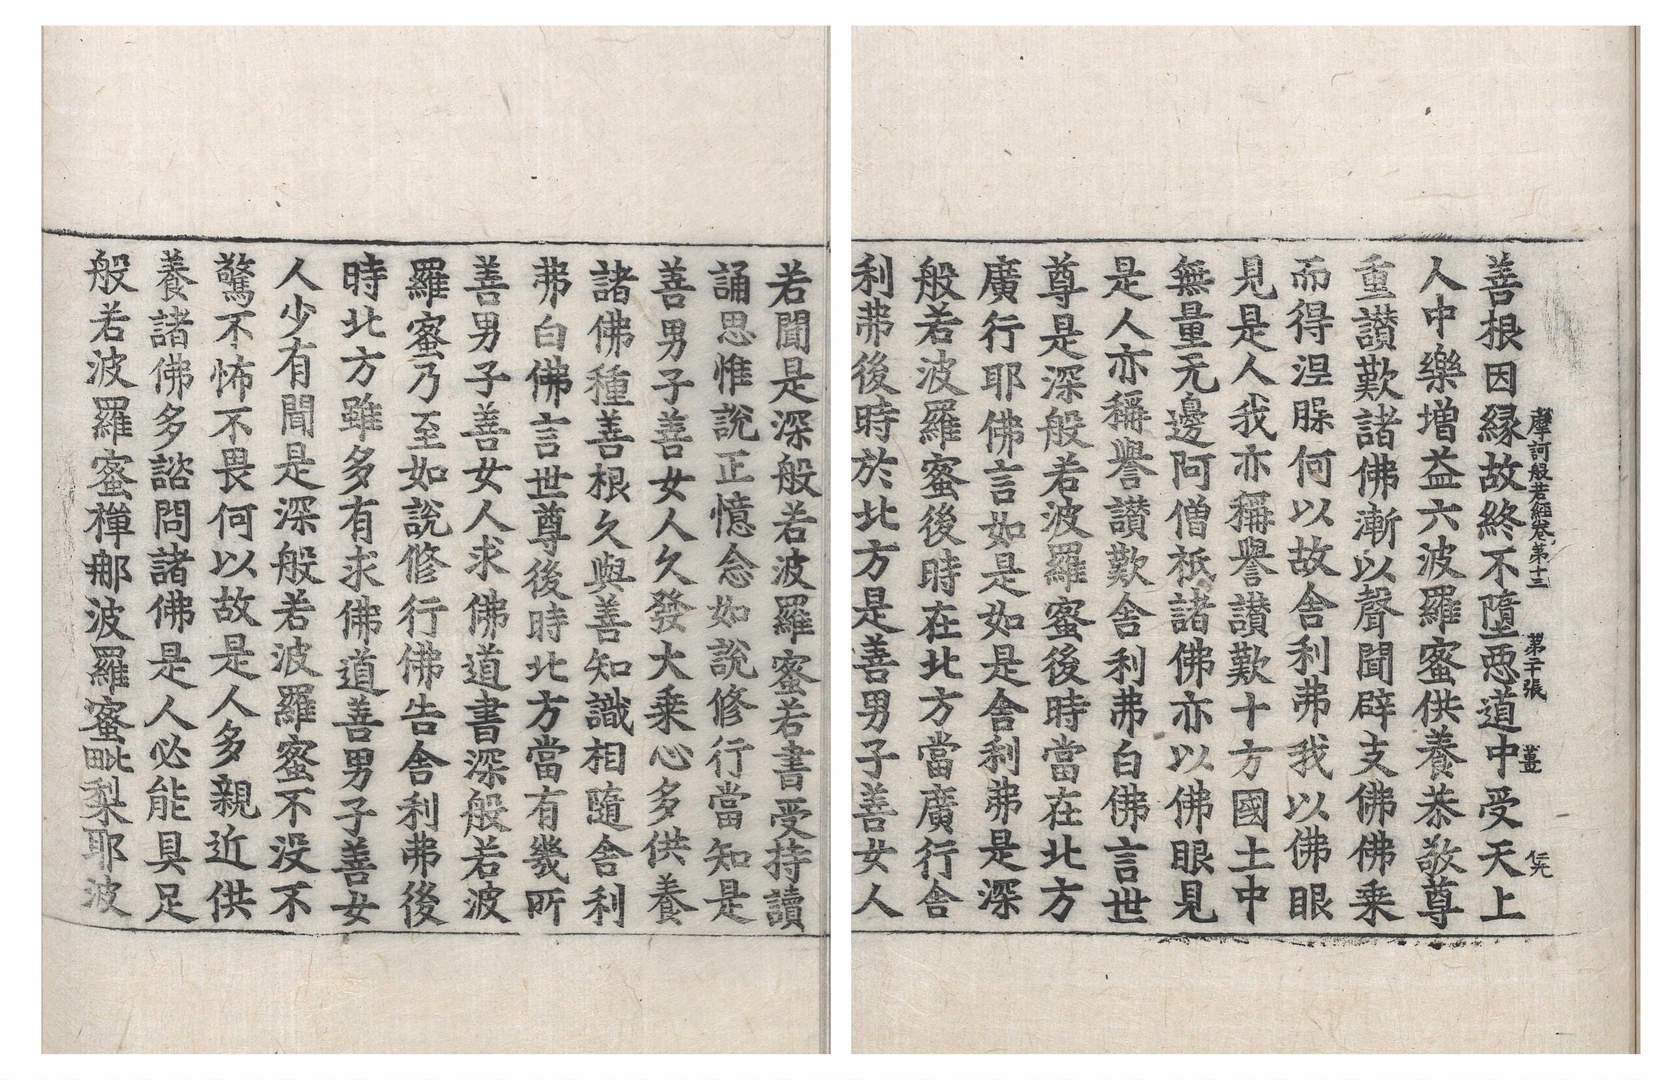 摩訶般若經卷第十三　第二十張　薑
善根因縁故終不墮惡道中受天上
人中樂增益六波羅蜜供養恭敬尊
重讃歎諸佛漸以聲聞辟支佛佛乘
而得涅脲何以故舍利弗我以佛眼
見是人我亦稱譽讃歎十方國土中
無量无邊阿僧祇諸佛亦以佛眼見
是人亦稱譽讃歎舍利弗白佛言世
尊是深般若波羅蜜後時當在北方
廣行耶佛言如是如是舍利弗是深
般若波羅蜜後時在北方當廣行舍
利弗後時於北方是善男子善女人
若聞是深般若波羅蜜若書受持讀
誦思惟說正憶念如說修行當知是
善男子善女人久發大乘心多供養
諸佛種善根久與善知識相隨舍利
弗白佛言世尊後時北方當有幾所
善男子善女人求佛道書深般若波
羅蜜乃至如說修行佛告舍利弗後
時北方雖多有求佛道善男子善女
人少有聞是深般若波羅蜜不没不
驚不怖不畏何以故是人多親近供
養諸佛多諮問諸佛是人必能具足
般若波羅蜜禪那波羅蜜毗梨耶波